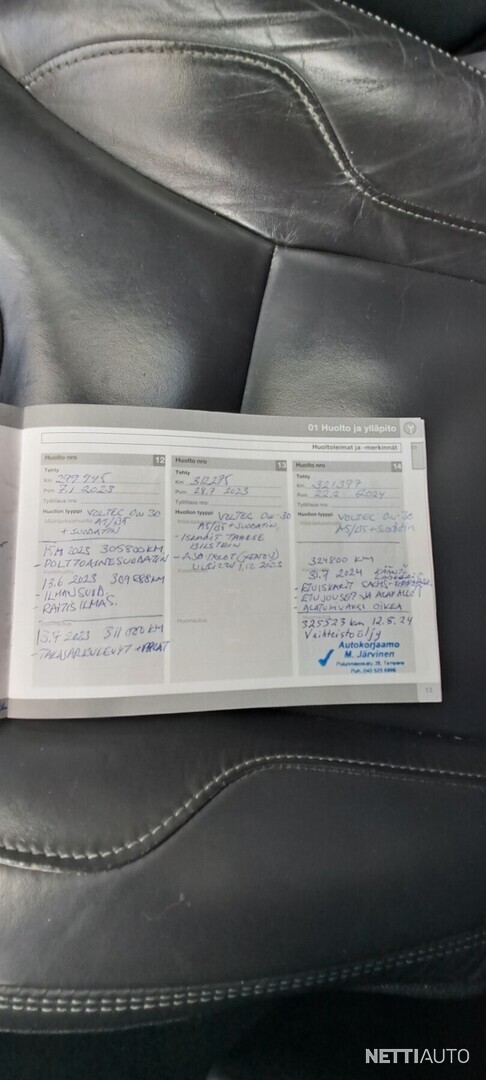 01 Huolto ja ylläpito
Huoltoleimat ja -merkinnät
Huolto nro 12
Tehty
Km 299 945
Pvm 7.1 2023
Työtilaus nro
Huollon tyyppi VOLTEC 0W 30
A5/B5
+ SUODATIN
15.4 2023 305800 KM
- POLTTOAINESUODATIN
13.6 2023 309688KM
- ILMANSUOD.
- RAITISILMAS.
15.7 2023 311 000 KM
- TAKAJARRULEVYT + PALAT
Huolto nro 13
Tehty
Km 312295
Pvm 28.7 2023
Työtilaus nro
Huollon tyyppi VOLTEC 0W-30
A5/B5 + SUODATIN
- ISKARIT TAAKSE
BILSTEIN
Huolto nro 14
Tehty
Km 321397
Pvm 22.2 2024
Työtilaus nro
Huollon tyyppi VOLTEC 0W-30
A5/B5 + SUODATIN
324800 KM
31.7 2024
- ETUISKARIT SACHS
- ETUJOUSET JA ALAPALLOT
- ALATUKIVARSI OIKEA
325523 km 12.8.24
Vaihteistoöljy
Autokorjaamo
M. Järvinen
Tampere
Puh.
13
NETTIAUTO